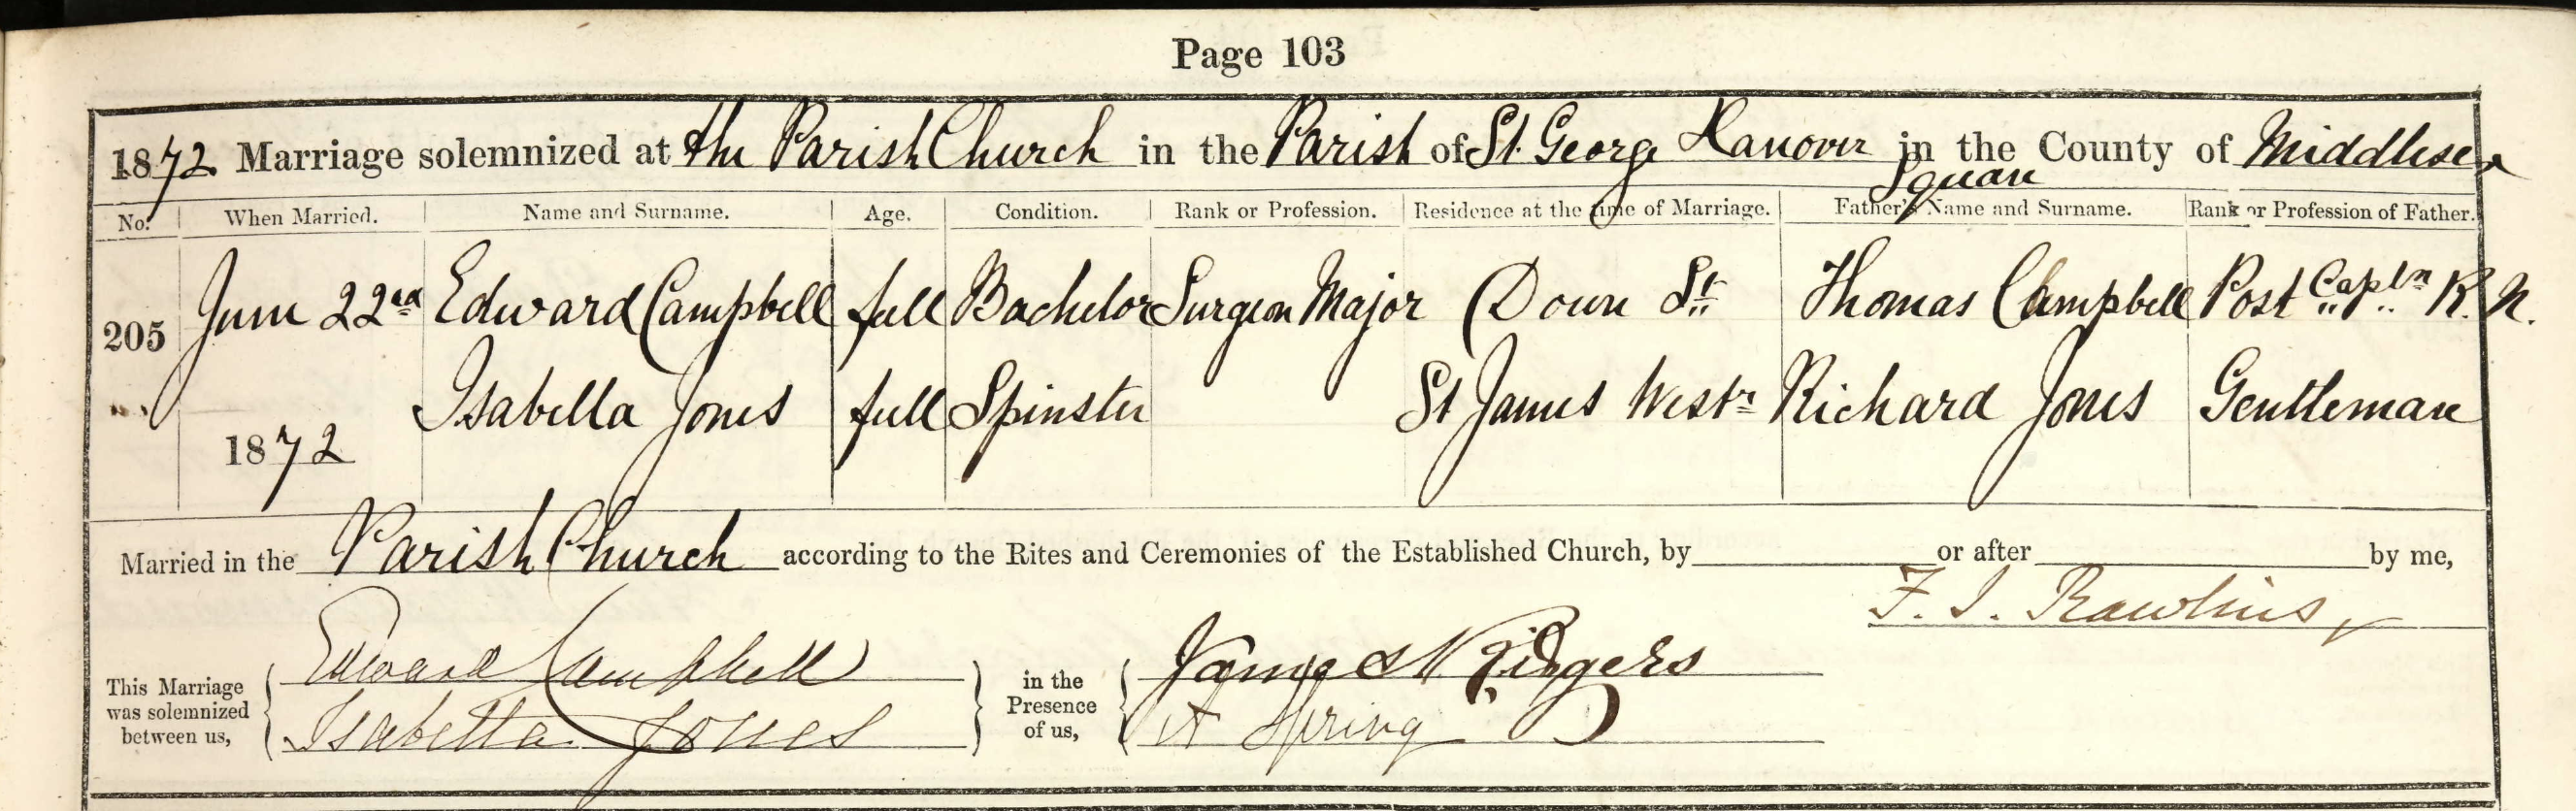 Page 103
1872 Marriage solemnized at the Parish Church in the Parish of St. George Hanover Square in the County of Middlesex
No. When Married. Name and Surname. Age. Condition. Rank or Profession. Residence at the time of Marriage. Father's Name and Surname. Rank or Profession of Father.
205 June 22nd Edward Campbell full Bachelor Surgeon Major Down St. Thomas Campbell Post Captn R.N.
Isabella Jones full Spinster St James Westr Richard Jones Gentleman
1872
Married in the Parish Church according to the Rites and Ceremonies of the Established Church, by or after by me,
F. J. Rawlins,
This Marriage was solemnized between us, Edward Campbell in the Presence of us, James
Isabella Jones A Spring